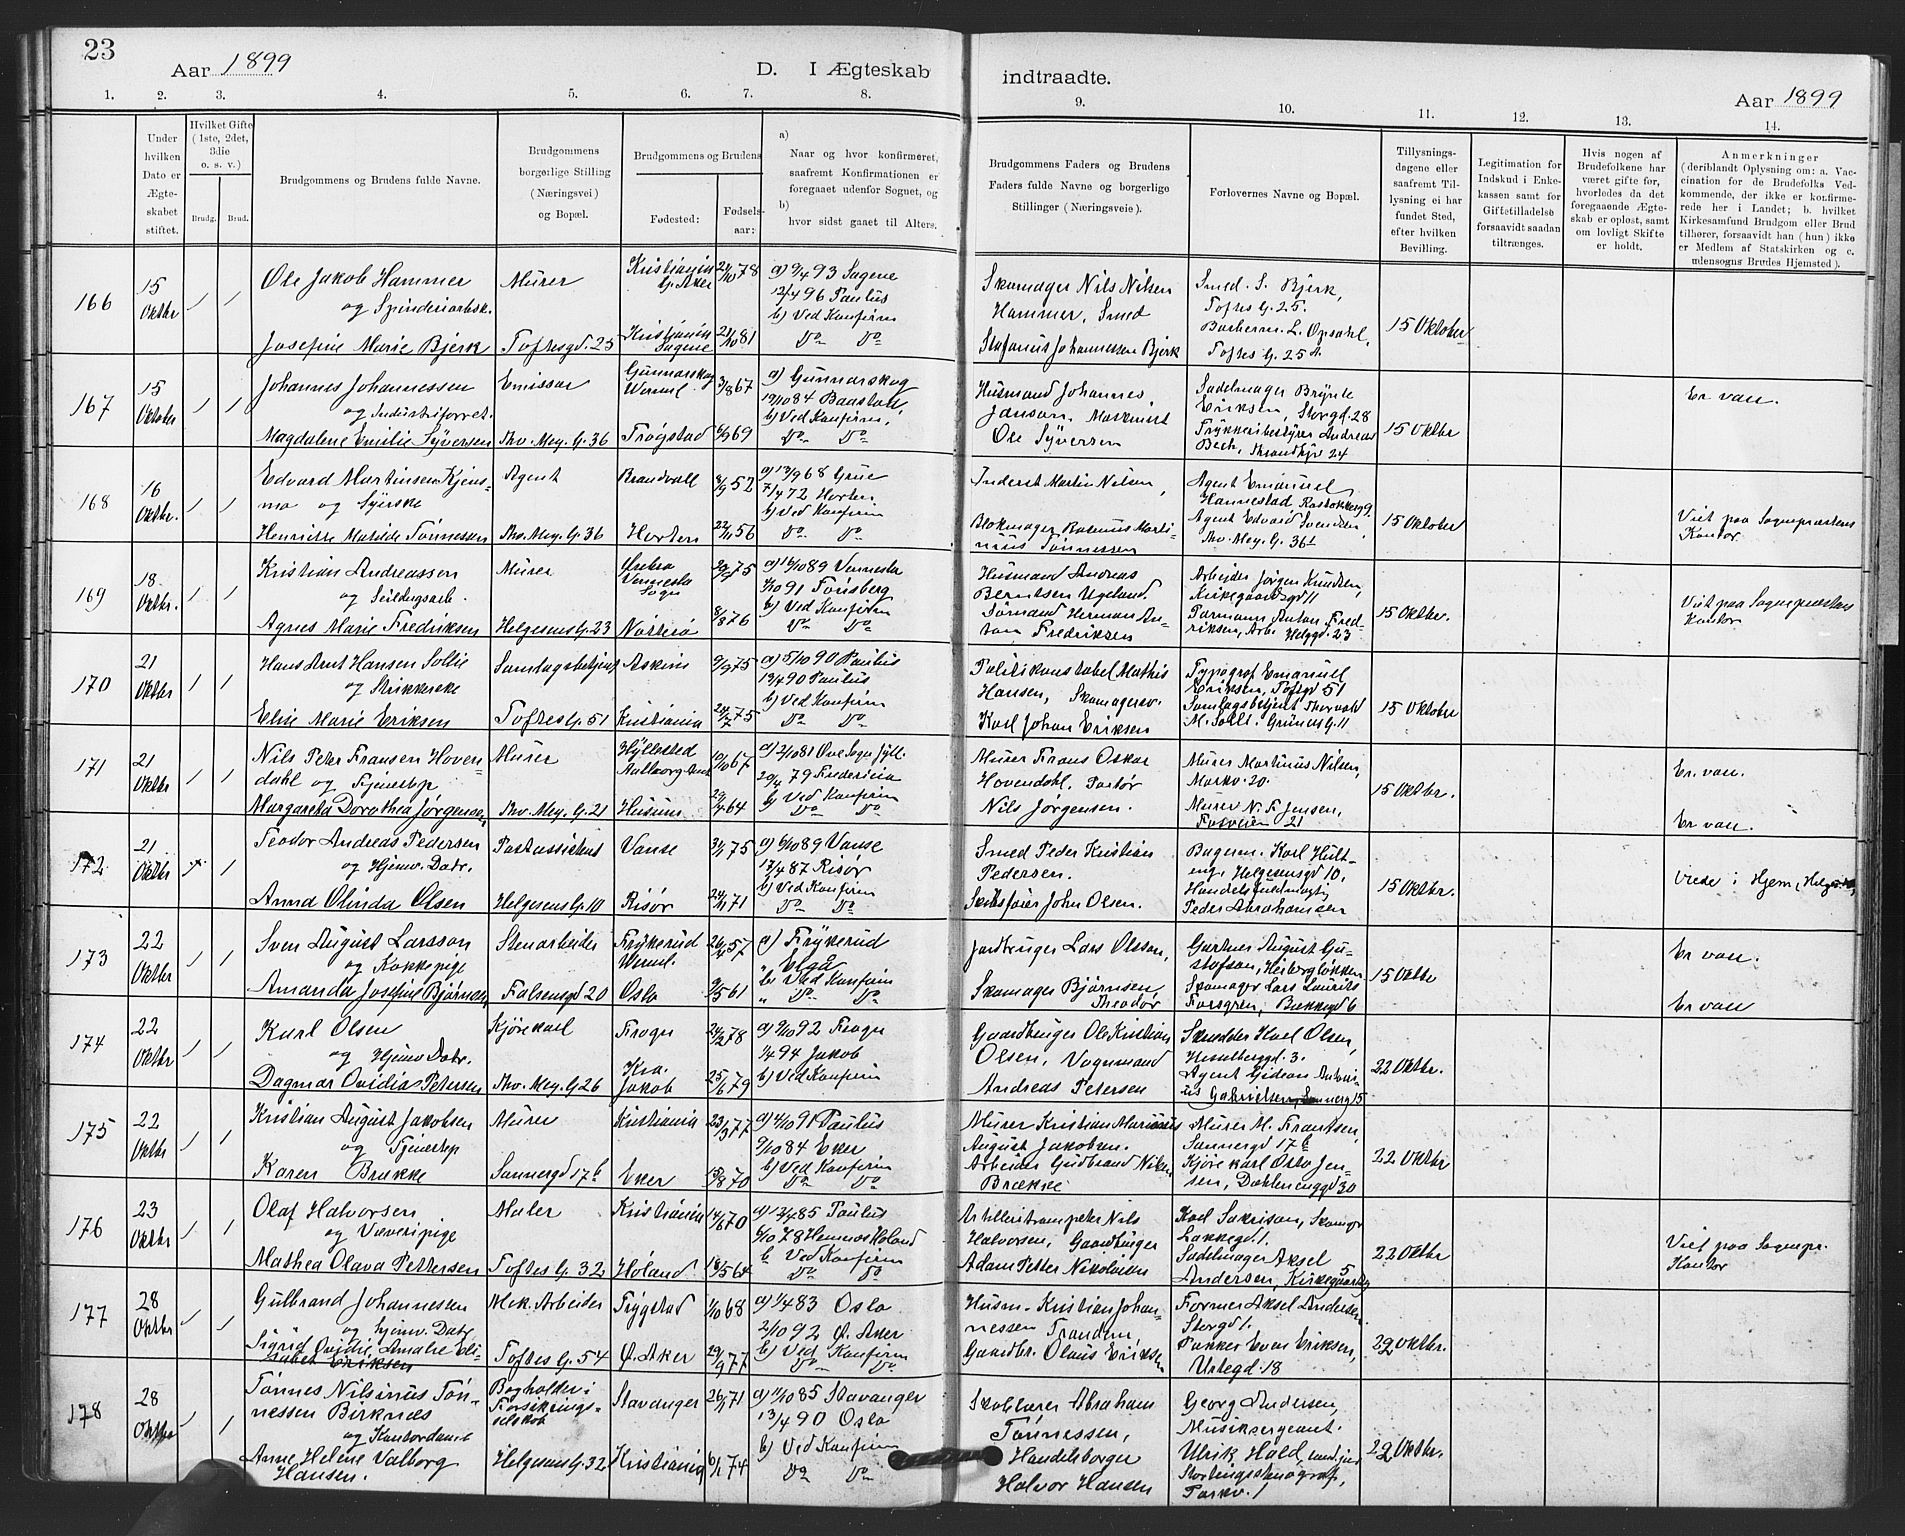 23
Aar 1899
D. I Ægteskab
indtraadte.
Aar 1899
1. 2. 3. 4. 5. 6. 7. 8. 9. 10. 11. 12. 13. 14.
Under hvilken Dato er Ægteskabet stiftet.
Hvilket Gifte (1ste, 2det, 3die o. s. v.)
Brudg. Brud.
Brudgommens og Brudens fulde Navne.
Brudgommens borgerlige Stilling (Næringsvei) og Bopæl.
Brudgommens og Brudens
Fødested: Fødselsaar:
a) Naar og hvor konfirmeret, saafremt Konfirmationen er foregaaet udenfor Sognet, og
b) hvor sidst gaaet til Alters.
Brudgommens Faders og Brudens Faders fulde Navne og borgerlige Stillinger (Næringsveie).
Forlovernes Navne og Bopæl.
Tillysningsdagene eller saafremt Tillysning ei har fundet Sted, efter hvilken Bevilling.
Legitimation for Indskud i Enkekassen samt for Giftetilladelse forsaavidt saadan tiltrænges.
Hvis nogen af Brudefolkene har været gifte før, hvorledes da det foregaaende Ægteskab er opløst, samt om lovligt Skifte er holdt.
Anmerkninger (deriblandt Oplysning om: a. Vaccination for de Brudefolks Vedkommende, der ikke er konfirmerede her i Landet; b. hvilket Kirkesamfund Brudgom eller Brud tilhører, forsaavidt han (hun) ikke er Medlem af Statskirken og c. udensogns Brudes Hjemsted).
166
15 Oktbr
Ole Jakob Hammer
og Spinderiarbsk.
Josefine Marie Bjerk
Murer
Toftesgd. 25
Kristiania
Kristiania Sagene
22/10 78
21/10 81
a) 9/4 93 Sagene
12/4 96 Paulus
b) Ved Konfirm
Do Do
Skomager Nils Nilsen
Hammer, Smed
Stefanus Johannessen Bjerk
Smed. S. Bjerk,
Toftes G. 25.
Barberm. L. Opsahl,
Toftes G. 25 A.
15 Oktober
167
15 Oktober
Johannes Johannessen
og Industriforret.
Magdalene Emilie Syversen
Emissær
Th. Mey. G. 36
Gunnarskog Werml.
Trøgstad
3/8 67
6/9 69
a) Gunnarskog
19/10 84 Baastad,
b) Ved Konfirm,
Do Do
Husmand Johannes
Janson, Maskinist
Ole Syversen
Sadelmager Brynte
Eriksen, Storgd. 28
Trykkeribestyrer Andreas
Bech, Strandgt 24
15 Oktbr
Er vac.
168
16 Oktbr.
Edvard Martinsen Kjensmo og Syerske
Henriette Matilde Tønnesen
Agent
Th. Mey. G. 36
Brandvold
Horten
8/9 52
22/11 56
a) 13/9 68 Grue
7/4 72 Horten
b) Ved Konfirm
Do Do
Inderst Martin Nilsen,
Blokmager Rasmus Martinius Tønnessen
Agent Emanuel
Hannestad, Rostokkerg 9.
Agent Edvard Svendsen
Th. Mey. G. 36
15 Oktober
Viet paa Sogneprestens
Kontor
169
18 Oktbr.
Kristian Andreassen
og Seildugsarb.
Agnes Marie Fredriksen
Murer
Helgesens G. 23
Øvrebø Vennesla Sogn
Nøtterø
8/8 76
a) 14/10 89 Vennesla
4/10 91 Tønsberg
b) Ved Konfirm
Do Do
Husmand Andreas
Berntsen Ugeland
Sømand Herman Anton Fredriksen
Arbeider Jørgen Knudsen,
Kirkegaardsgd 11
Formann Anton Fredriksen, Arb. Helgd. 23
15 Oktbr.
Viet paa Sogneprestens
Kontor
170
21 Oktbr
Hans Arnt Hansen Sollie
og Strikkerske
Elise Marie Eriksen
Samlagsbetjent
Toftes G. 51
Askim
Kristiania
9/9 75
24/7 75
a) 5/10 90 Paulus
13/4 90 Paulus
b) Ved Konfirm
Do Do
Politikonstabel Mathis
Hansen, Skomagersv.
Karl Johan Eriksen
Typograf Emanuel
Eriksen, Toftgd 51
Samlagsbetjent Thorvald
M. Sollie. Grüners G. 11
15 Oktober
171
21 Oktbr
Nils Peter Fransen Hovendahl og Tjenestep
Margareta Dorothea Jørgensen
Murer
Th. Mey. G. 21
Hyllested
Aalborg Amt
Husum
10/10 67
29/4 64
a) 2/10 81 Ove Sogn Jyll.
20/4 79 Fredericia
b) Ved Konfirm
Do Do
Murer Frans Oskar
Hovendahl. Pastør
Nils Jørgensen.
Murer Martinus Nilsen,
Markv. 20.
Murer N. F. Jensen,
Fosveien 21
15 Oktbr.
Er vac.
Er vac.
172
21 Oktbr
Teodor Andreas Pedersen
og Hjemv. Datr.
Anna Olinda Olsen
Postassistent
Helgesens G. 10
Vanse
Risør
31/1 75
24/11 71
a) 6/10 89 Vanse
17/4 87 Risør
b) Ved Konfirm
Do Do
Smed Peder Kristian
Pedersen.
Skibsfører John Olsen.
Bagerm. Karl Hulteng, Helgesensgd 10,
Handelsfuldmægtig
Peder Abrahamsen
15 Oktbr.
Viede i Hjem, Helges.
173
22 Oktbr
Sven August Larsson
og Kokkepige
Amanda Josefine Bjørnsen
Stenarbeider
Falsensgd 20
Frykerud Werml.
Oslo
26/4 57
9/5 61
a) Frykerud
" Elgå
b) Ved Konfirm
" Do Do
Jordbruger Lars Olsson,
Skomager Bjørnsen
Theodor
Gartner August Gustafson, Heibergløkken
Skomager Lars Laurits
Forsgren, Bakkegd 6
15 Oktbr
Er vac.
Er vac
174
22 Oktbr
Karl Olsen
og Hjemv Datr.
Dagmar Ovidia Petersen
Kjørekarl
Th. Mey. G. 26
Frogn
Kra. Jakob
24/2 78
25/6 79
a) 9/10 92 Frogn
1/4 94 Jakob
b) Ved Konfirm
Gaardbruger Ole Kristian
Olsen, Vognmand
Andreas Petersen
Skrædder Karl Olsen,
Hesselberggd. 3.
Agent Gideon Antonius Gabrielsen, Sannerg 15
22 Oktbr.
175
22 Oktbr
Kristian August Jakobsen
og Tjenestep
Karen Brække
Murer
Sannergd 17 b
Kristiania
Eker
23/3 77
15/8 70
a) 4/10 91 Paulus
9/10 84 Eker
b) Ved Konfirm
Do Do
Murer Kristian Marinius
August Jakobsen.
Arbeider Gudbrand Nilsen
Brække
Murer M. Frantsen,
Sannergd 17 b
Kjørekarl Oslo Jensen, Dahlenenggd 30
22 Oktbr
176
23 Oktbr
Olaf Halvorsen
og Væveripige
Mathea Olava Pettersen
Maler
Toftes G. 32
Kristiania
Høland
14/6 70
18/5 64
a) 12/4 85 Paulus
6/10 78 Hemnes Høland
b Ved Konfirm
Do Do
Artilleritrompeter Nils
Halvorsen, Gaardbruger
Adam Petter Nikolaisen
Karl Sakrison, Skomgr
Lakkegd. 1.
Sadelmager Aksel
Andersen, Kirkegaardsg 5
22 Oktbr
Viet paa Sognepr.
Kontor
177
28 Oktbr
Gulbrand Johannesen
og hjemv. Datr
Sigrid Ovidie Amalie Elisabet Eriksen
Mek. Arbeider
Toftes G. 54
Trygstad
Ø. Aker
1/10 68
29/9 77
a) 1/4 83 Oslo
2/10 92 Ø. Aker
b) Ved Konfirm
Do Do
Husm. Kristian Johannessen Frandem,
Gaardbr. Olaus Eriksen
Former Aksel Andersen
Storgd 1.
Pakker Even Eriksen,
Urtegd. 18
22 Oktbr.
178
28 Oktbr
Tønnes Nilsinus Tønnessen Birknes
og Kontordame
Anne Helene Valborg
Hansen.
Bogholder i
Forsikringsselskab
Helgesens G. 32
Stavanger
Kristiania
26/1 71
6/1 74
a) 11/10 85 Stavanger
13/4 90 Oslo
b) Ved Konfirm
Do Do
Skolelærer Abraham
Tønnessen,
Handelsborger
Halvor Hansen
Georg Andersen,
Musiksergeant.
Ulrik Hald, cand. jur
Stortingsstenograf,
Parkv. 1
22 Oktbr.